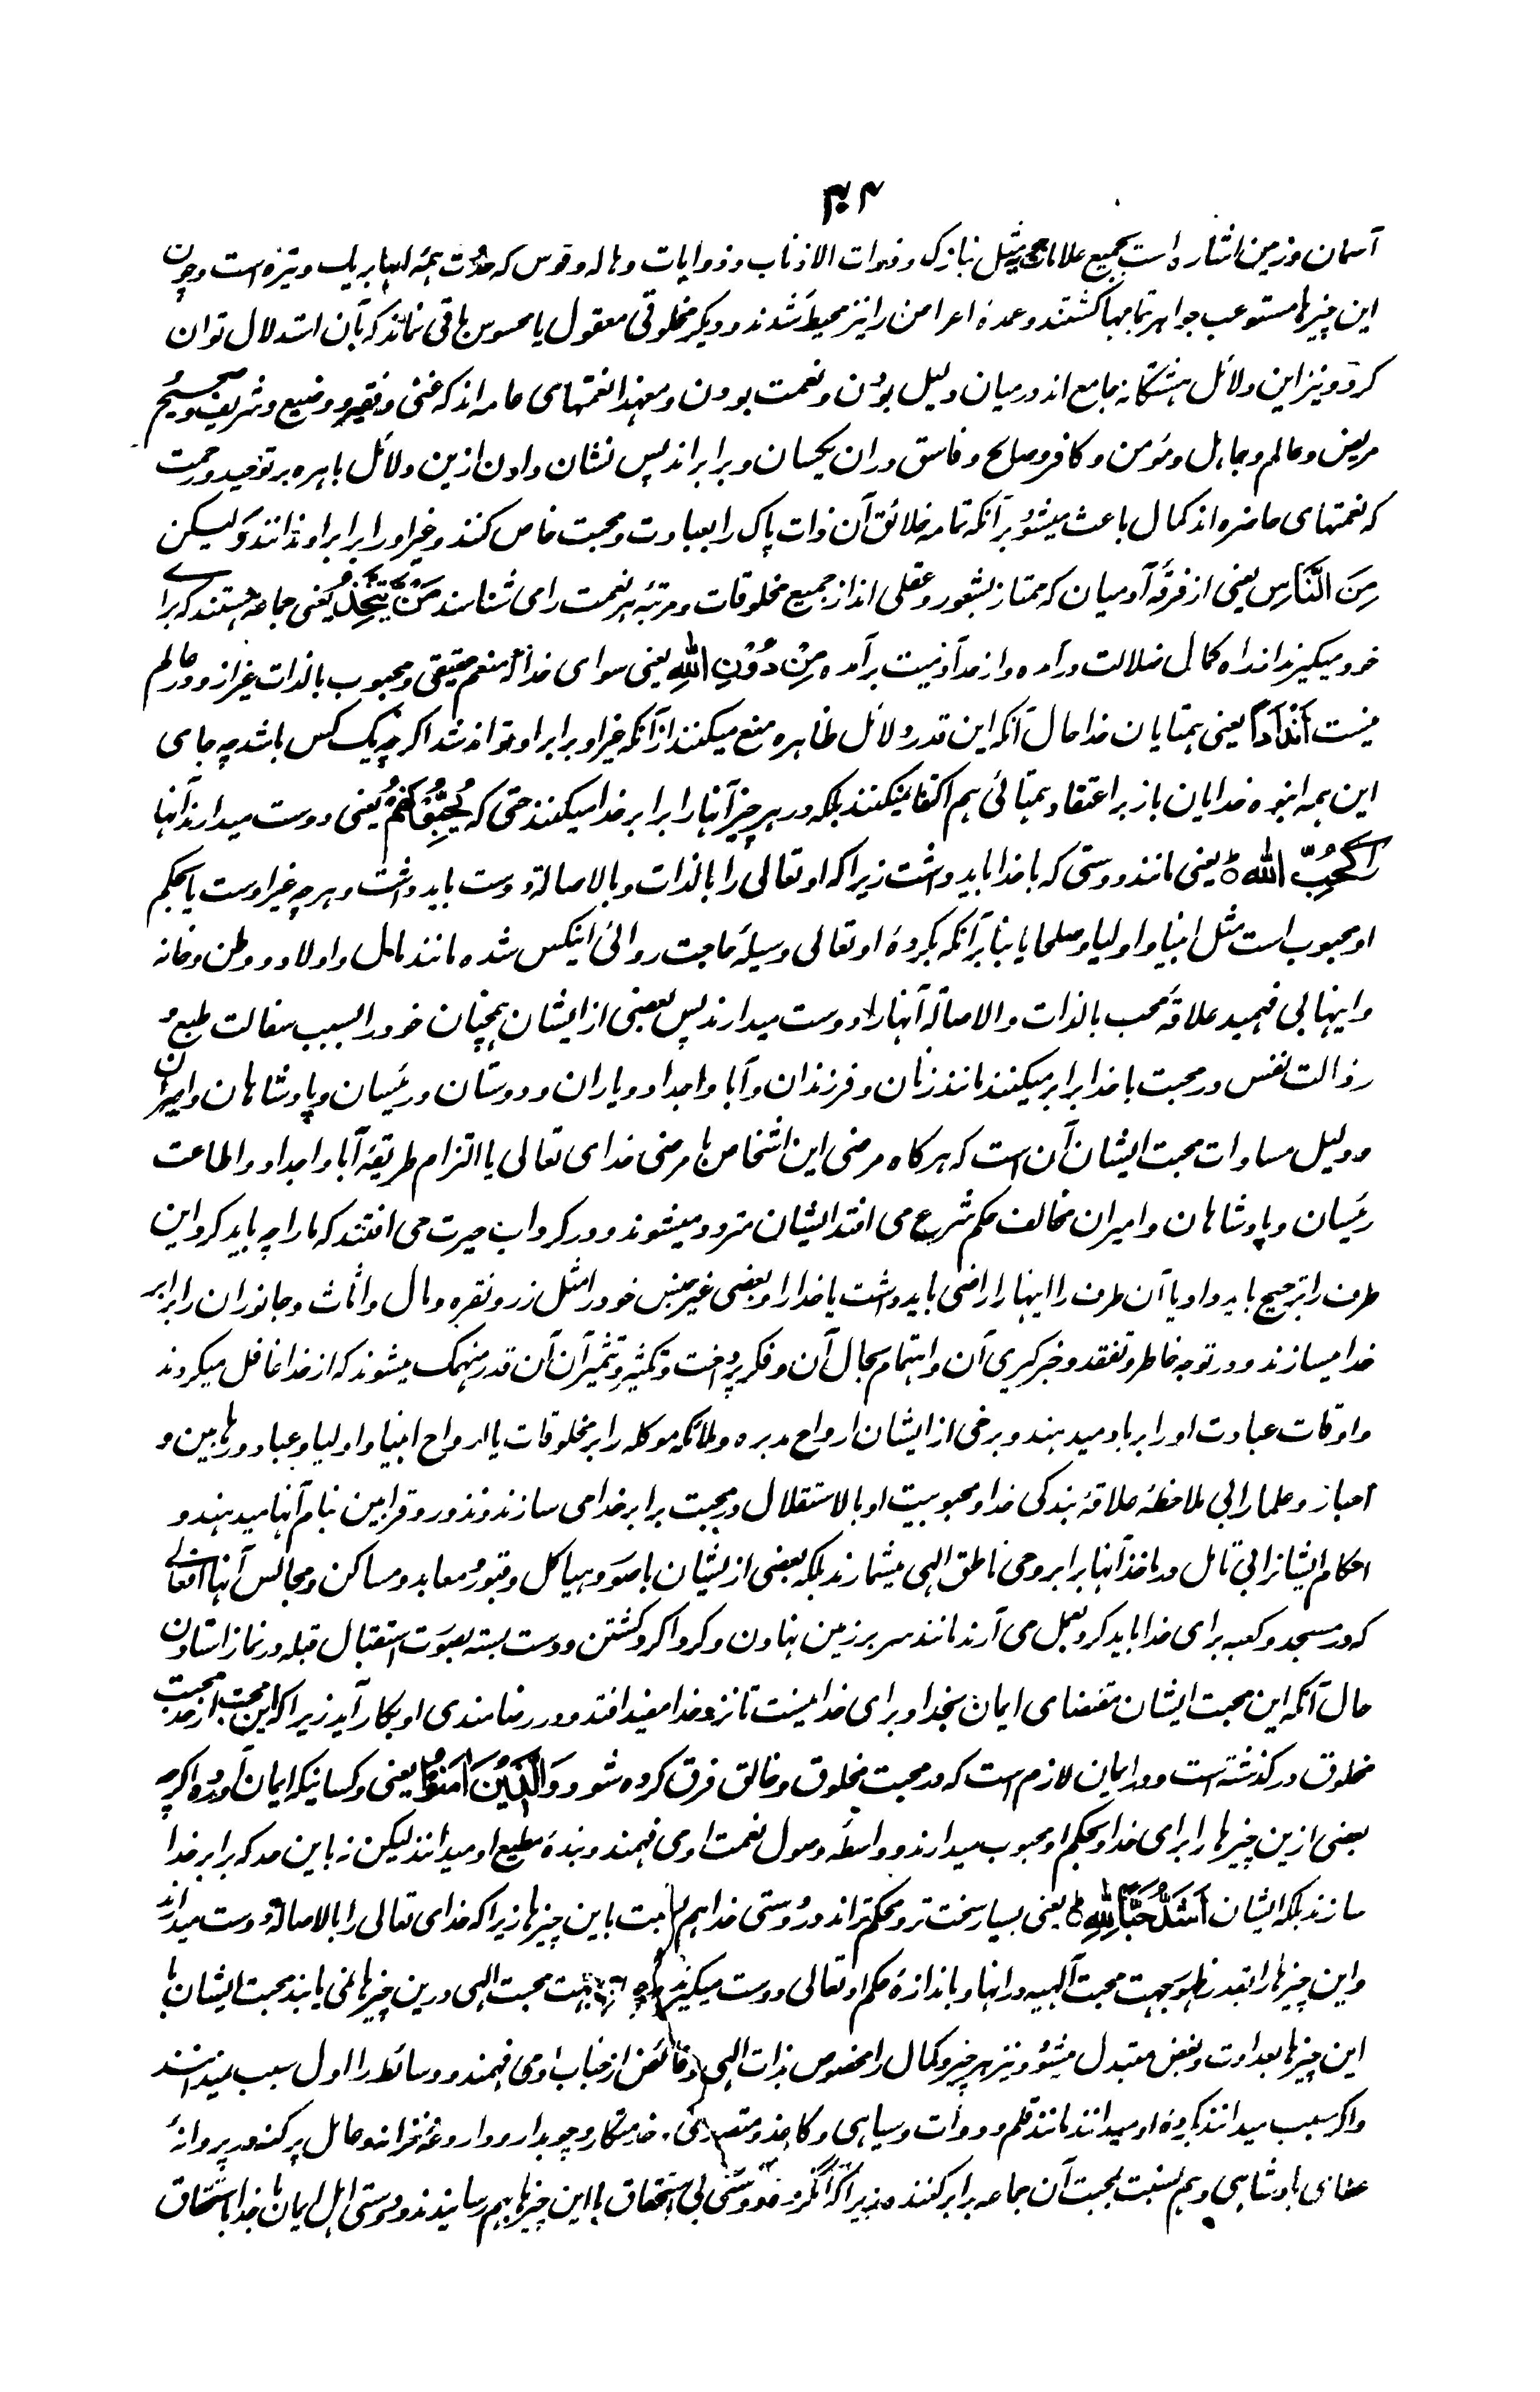 ۳۰۴
آسمان و زمین اشاره است بجمیع علامات مثل نیازک و ذوات الاذناب و ذوابات و هاله و قوس که حدوث همه اینها بر یک وتیره است و چون
این چیزها مستوعب جواهر بتمامها گشتند و عمده اعراض را نیز محیط شدند و دیگر مخلوقی معقول یا محسوس باقی نماند که بآن استدلال توان
کرد و نیز این دلائل هشتگانه جامع اند در میان دلیل بودن و نعمت بودن و معهذا نعمتهای عامه اند که غنی و فقیر و وضیع و شریف و صحیح
مریض و عالم و جاهل و مؤمن و کافر و صالح و فاسق در ان یکسان و برابر اند پس نشان دادن ازین دلائل باهره بر توحید و رحمت
که نعمتهای حاضره اند کمال باعث میشود بر آنکه تمامه خلائق آن ذات پاک را بعبادت و محبت خاص کنند و غیر او را برابر او ندانند وَلیکن
مِنَ النَّاسِ یعنی از فرقهٔ آدمیان که ممتاز بشعور و عقلی اند از جمیع مخلوقات و مرتبهٔ هر نعمت را می شناسند مَنْ یَّتَّخِذُ یعنی جماعه هستند که برای
خود میگیرند از راه کمال ضلالت در آمده و از حد آدمیت بر آمده مِنْ دُوْنِ اللّٰهِ یعنی سوای خدا که منعم حقیقی و محبوب بالذات غیر از و در عالم
نیست اَنْدَادًا یعنی همتایان خدا حال آنکه این قدر دلائل ظاهره منع میکنند از آنکه غیر او برابر او تواند شد اگر چه یک کس باشد چه جای
این همه انبوه خدایان باز بر اعتقاد همتائی هم اکتفا نمیکنند بلکه در هر چیز آنها را برابر خدا میکنند حتی که یُحِبُّوْنَهُمْ یعنی دوست میدارند آنها
را کَحُبِّ اللّٰهِ ط یعنی مانند دوستی که با خدا باید داشت زیرا که او تعالی را بالذات و بالاصالة دوست باید داشت و هر چه غیر اوست یا بحکم
او محبوب است مثل انبیا و اولیا و صلحا یا بنا بر آنکه بکردهٔ او تعالی وسیلهٔ حاجت روائی اینکس شده مانند مال و اولاد و وطن و خانه
و اینها بی فهمید علاقهٔ محب بالذات و الاصالة آنها را دوست میدارند پس بعضی از ایشان همجنسان خود را بسبب سفالت طبع و
رذالت نفس در محبت با خدا برابر میکنند مانند زنان و فرزندان و آبا و اجداد و یاران و دوستان و رئیسان و پادشاهان و امیران
و دلیل مساوات محبت ایشان آن است که هر گاه مرضی این اشخاص با مرضی خدای تعالی یا التزام طریقهٔ آبا و اجداد و اطاعت
رئیسان و پادشاهان و امیران مخالف حکم شرع می افتد ایشان متردد میشوند و در گرداب حیرت می افتند که ما را چه باید کرد این
طرف را ترجیح باید داد یا آن طرف را اینها را راضی باید داشت یا خدا را و بعضی غیر جنس خود را مثل زر و نقره و مال و اثاث و جانوران را برابر
خدا میسازند و در توجه خاطر و تفقد و خبرگیری آن و اهتمام بحال آن و فکر پرداخت و تکثیر و تثمیر آن آن قدر منهمک میشوند که از خدا غافل میگردند
و اوقات عبادت او را برباد میدهند و برخی از ایشان ارواح مدبره و ملائکه موکله را بر مخلوقات یا ارواح انبیا و اولیا و عباد و رهابین و
احبار و علما را بی ملاحظهٔ علاقهٔ بندگی خدا و محبوبیت او بالاستقلال در محبت برابر خدا می سازند و نذور و قرابین بنام آنها میدهند و
احکام ایشانرا بی تامل در ماخذ آنها برابر وحی ناطق الهی میشمارند بلکه بعضی از ایشان با صور و هیاکل و قبور و معابد و مساکن و مجالس آنها افعالی
که در مسجد و کعبه برای خدا باید کرد بعمل می آرند مانند سر بر زمین نهادن و گرداگرد گشتن و دست بسته بصورت استقبال قبله در نماز استادن
حال آنکه این محبت ایشان مقتضای ایمان بخدا و برای خدا نیست تا نزد خدا مفید افتد و در رضامندی او بکار آید زیرا که این محبت از حد محبت
مخلوق در گذشته است و در ایمان لازم است که در محبت مخلوق و خالق فرق کرده شود وَالَّذِیْنَ اٰمَنُوْا یعنی و کسانیکه ایمان آورده اند اگر چه
بعضی ازین چیزها را برای خدا و بحکم او محبوب میدارند و واسطهٔ وصول نعمت او می فهمند و بندهٔ مطیع او میدانند لیکن نه باین حد که برابر خدا
سازند بلکه ایشان اَشَدُّ حُبًّا لِّلّٰهِ ط یعنی بسیار سخت تر و محکم تر اند در دوستی خدا هم نسبت باین چیزها زیرا که خدای تعالی را بالاصالة دوست میدارند
و این چیزها را بقدر ظهور جهت محبت آلهیه در انها و باندازهٔ حکم او تعالی دوست میگیرند جهت محبت الهی درین چیزها نمی یابند محبت ایشان با
این چیزها بعداوت و بغض متبدل میشود و نیز هر خیر و کمال را مخصوص بذات الهی و فائض از جناب او می فهمند و وسائط را اول سبب نمیدانند
و اگر سبب میدانند بکردهٔ او میدانند مانند قلم و دوات و سیاهی و کاغذ و متصدی خدمتگار و چوبدار و داروغهٔ خزانه و حامل پر کنه در پروانهٔ
عطای بادشاهی و هم نسبت بمحبت آن جماعه برابر کننده زیرا که دوستی بی استحقاق با این چیزها بهم رسانیدند و دوستی اهل ایمان با خدا باستحقاق